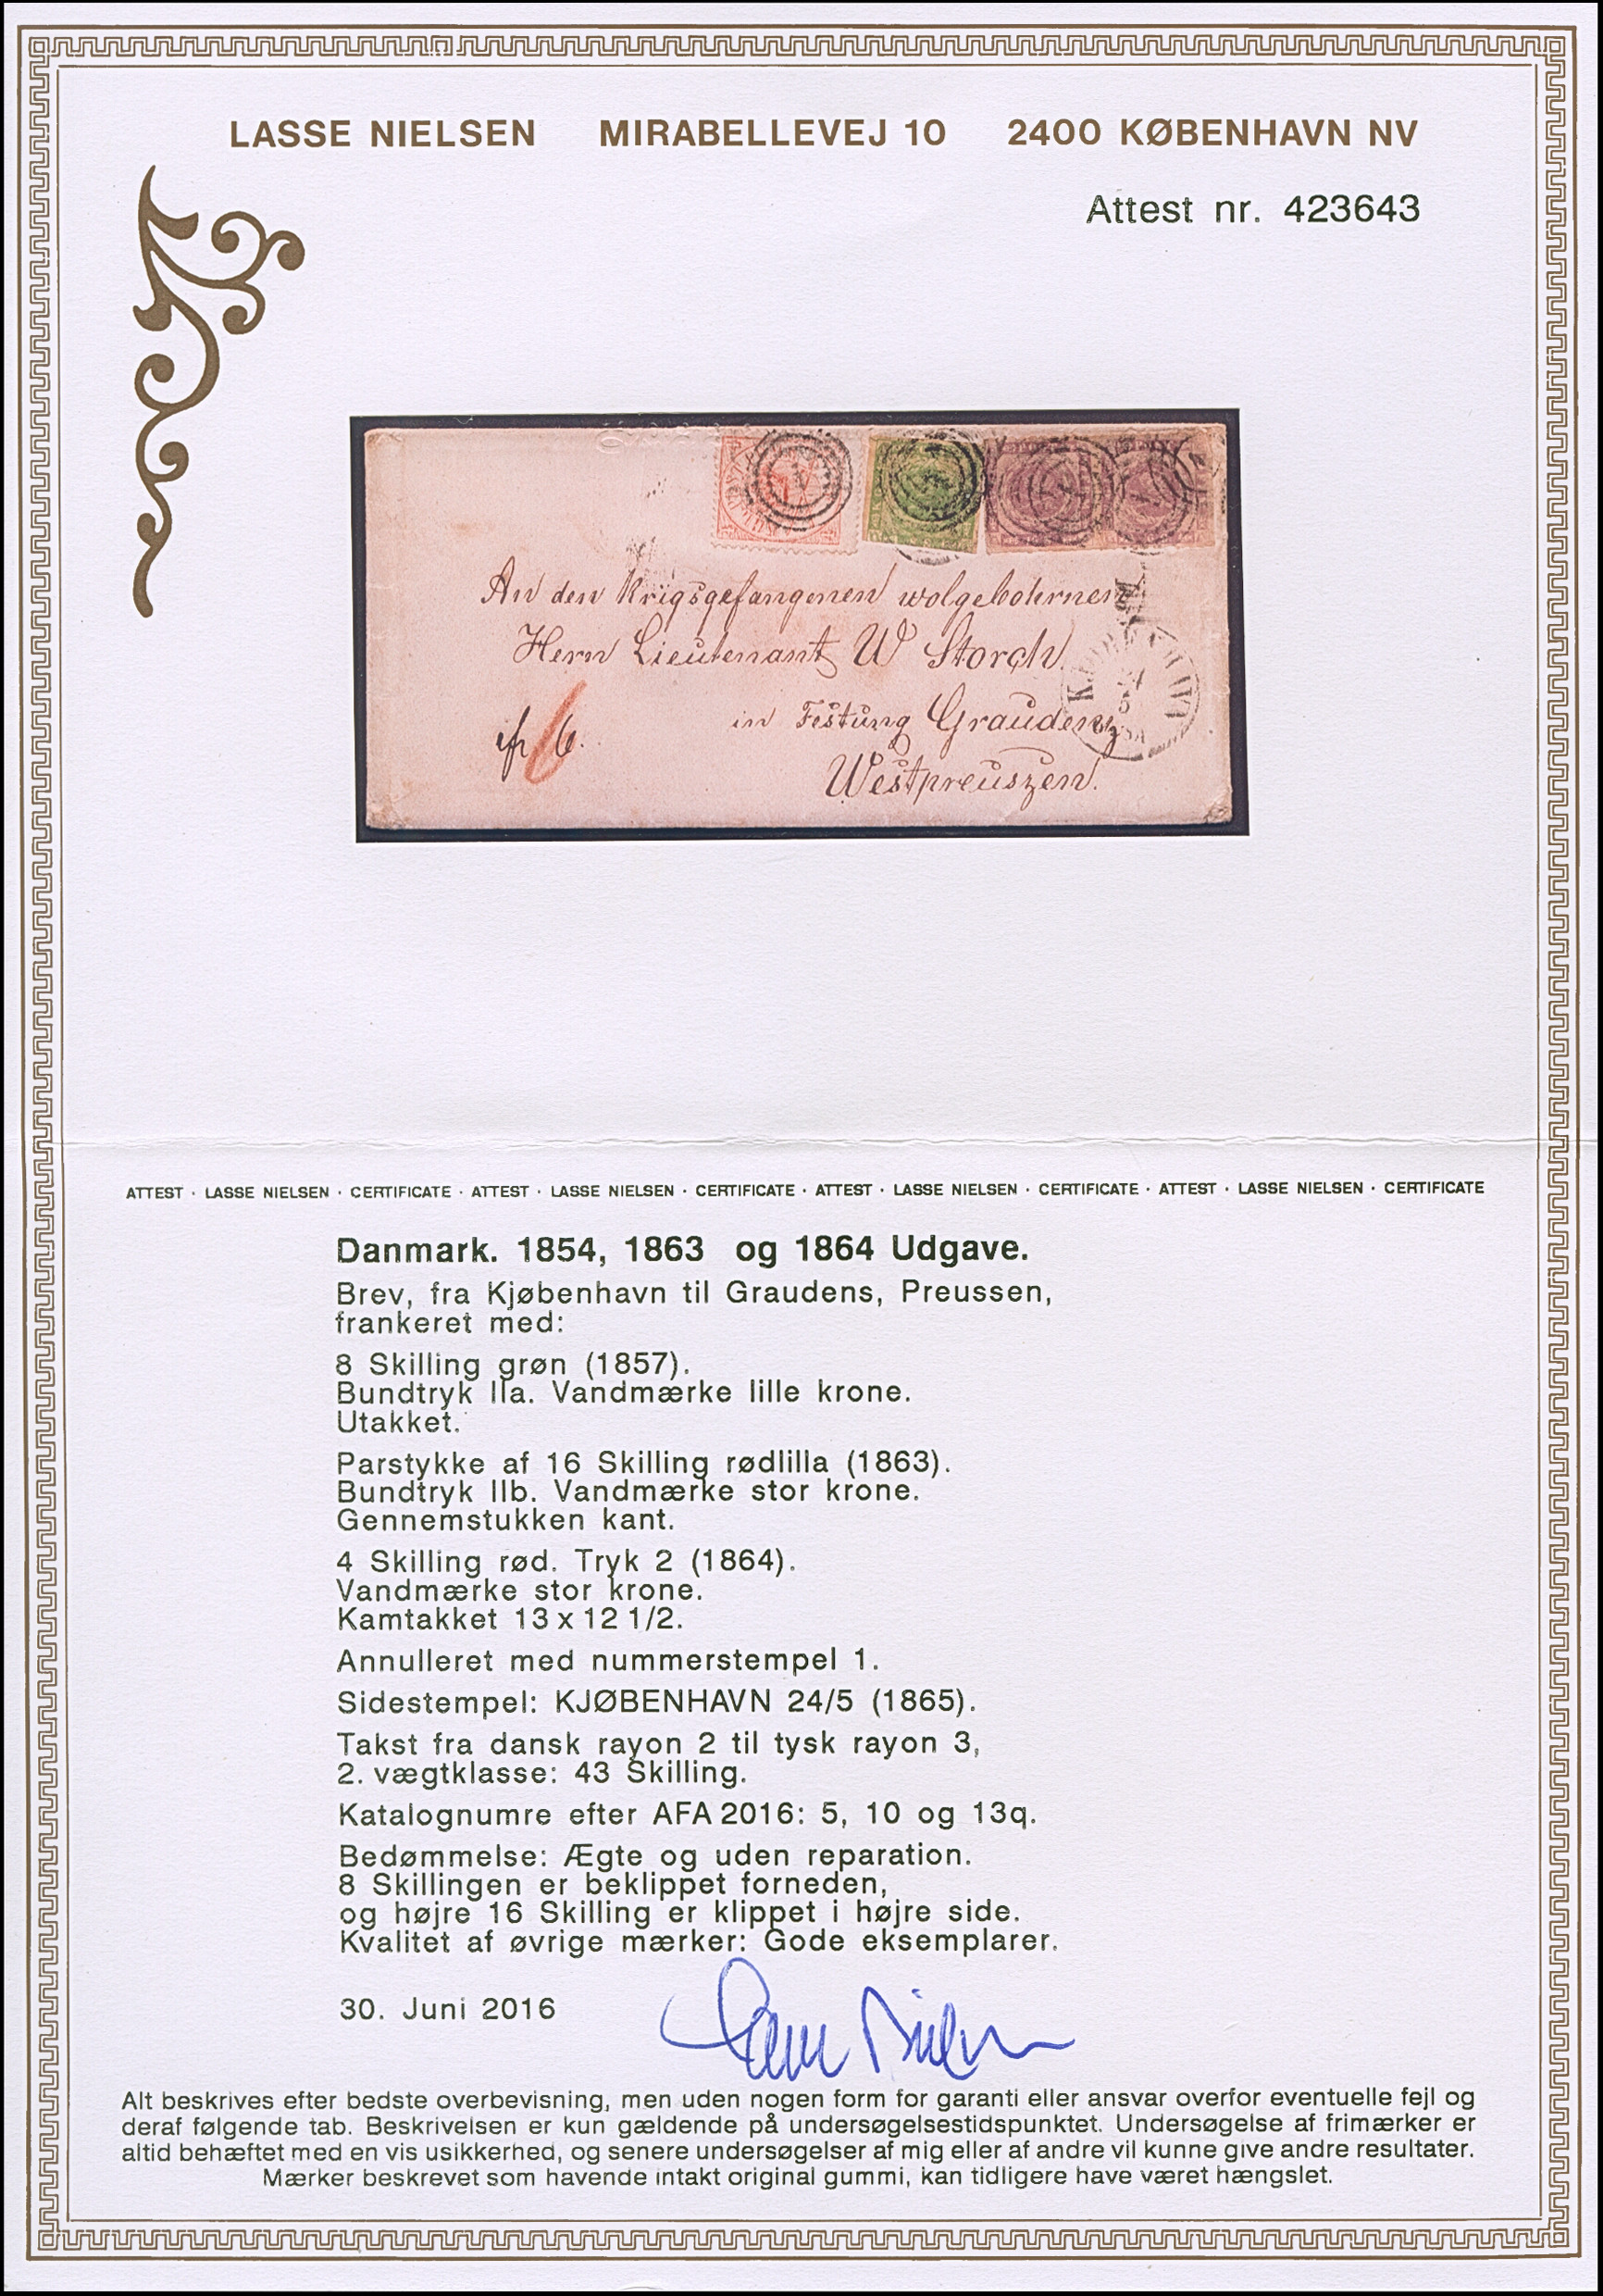 LASSE NIELSEN MIRABELLEVEJ 10 2400 KØBENHAVN NV
Attest nr. 423643
An den Krigsgefangenen wolgebohrnen
Herrn Lieutenant W Storch
in Festung Graudenz
Westpreuszen.
KJØBENHAVN
ATTEST · LASSE NIELSEN · CERTIFICATE · ATTEST · LASSE NIELSEN · CERTIFICATE · ATTEST · LASSE NIELSEN · CERTIFICATE · ATTEST · LASSE NIELSEN · CERTIFICATE
Danmark. 1854, 1863 og 1864 Udgave.
Brev, fra Kjøbenhavn til Graudens, Preussen,
frankeret med:
8 Skilling grøn (1857).
Bundtryk IIa. Vandmærke lille krone.
Utakket.
Parstykke af 16 Skilling rødlilla (1863).
Bundtryk IIb. Vandmærke stor krone.
Gennemstukken kant.
4 Skilling rød. Tryk 2 (1864).
Vandmærke stor krone.
Kamtakket 13 x 12 1/2.
Annulleret med nummerstempel 1.
Sidestempel: KJØBENHAVN 24/5 (1865).
Takst fra dansk rayon 2 til tysk rayon 3,
2. vægtklasse: 43 Skilling.
Katalognumre efter AFA 2016: 5, 10 og 13q.
Bedømmelse: Ægte og uden reparation.
8 Skillingen er beklippet forneden,
og højre 16 Skilling er klippet i højre side.
Kvalitet af øvrige mærker: Gode eksemplarer.
30. Juni 2016
Alt beskrives efter bedste overbevisning, men uden nogen form for garanti eller ansvar overfor eventuelle fejl og
deraf følgende tab. Beskrivelsen er kun gældende på undersøgelsestidspunktet. Undersøgelse af frimærker er
altid behæftet med en vis usikkerhed, og senere undersøgelser af mig eller af andre vil kunne give andre resultater.
Mærker beskrevet som havende intakt original gummi, kan tidligere have været hængslet.